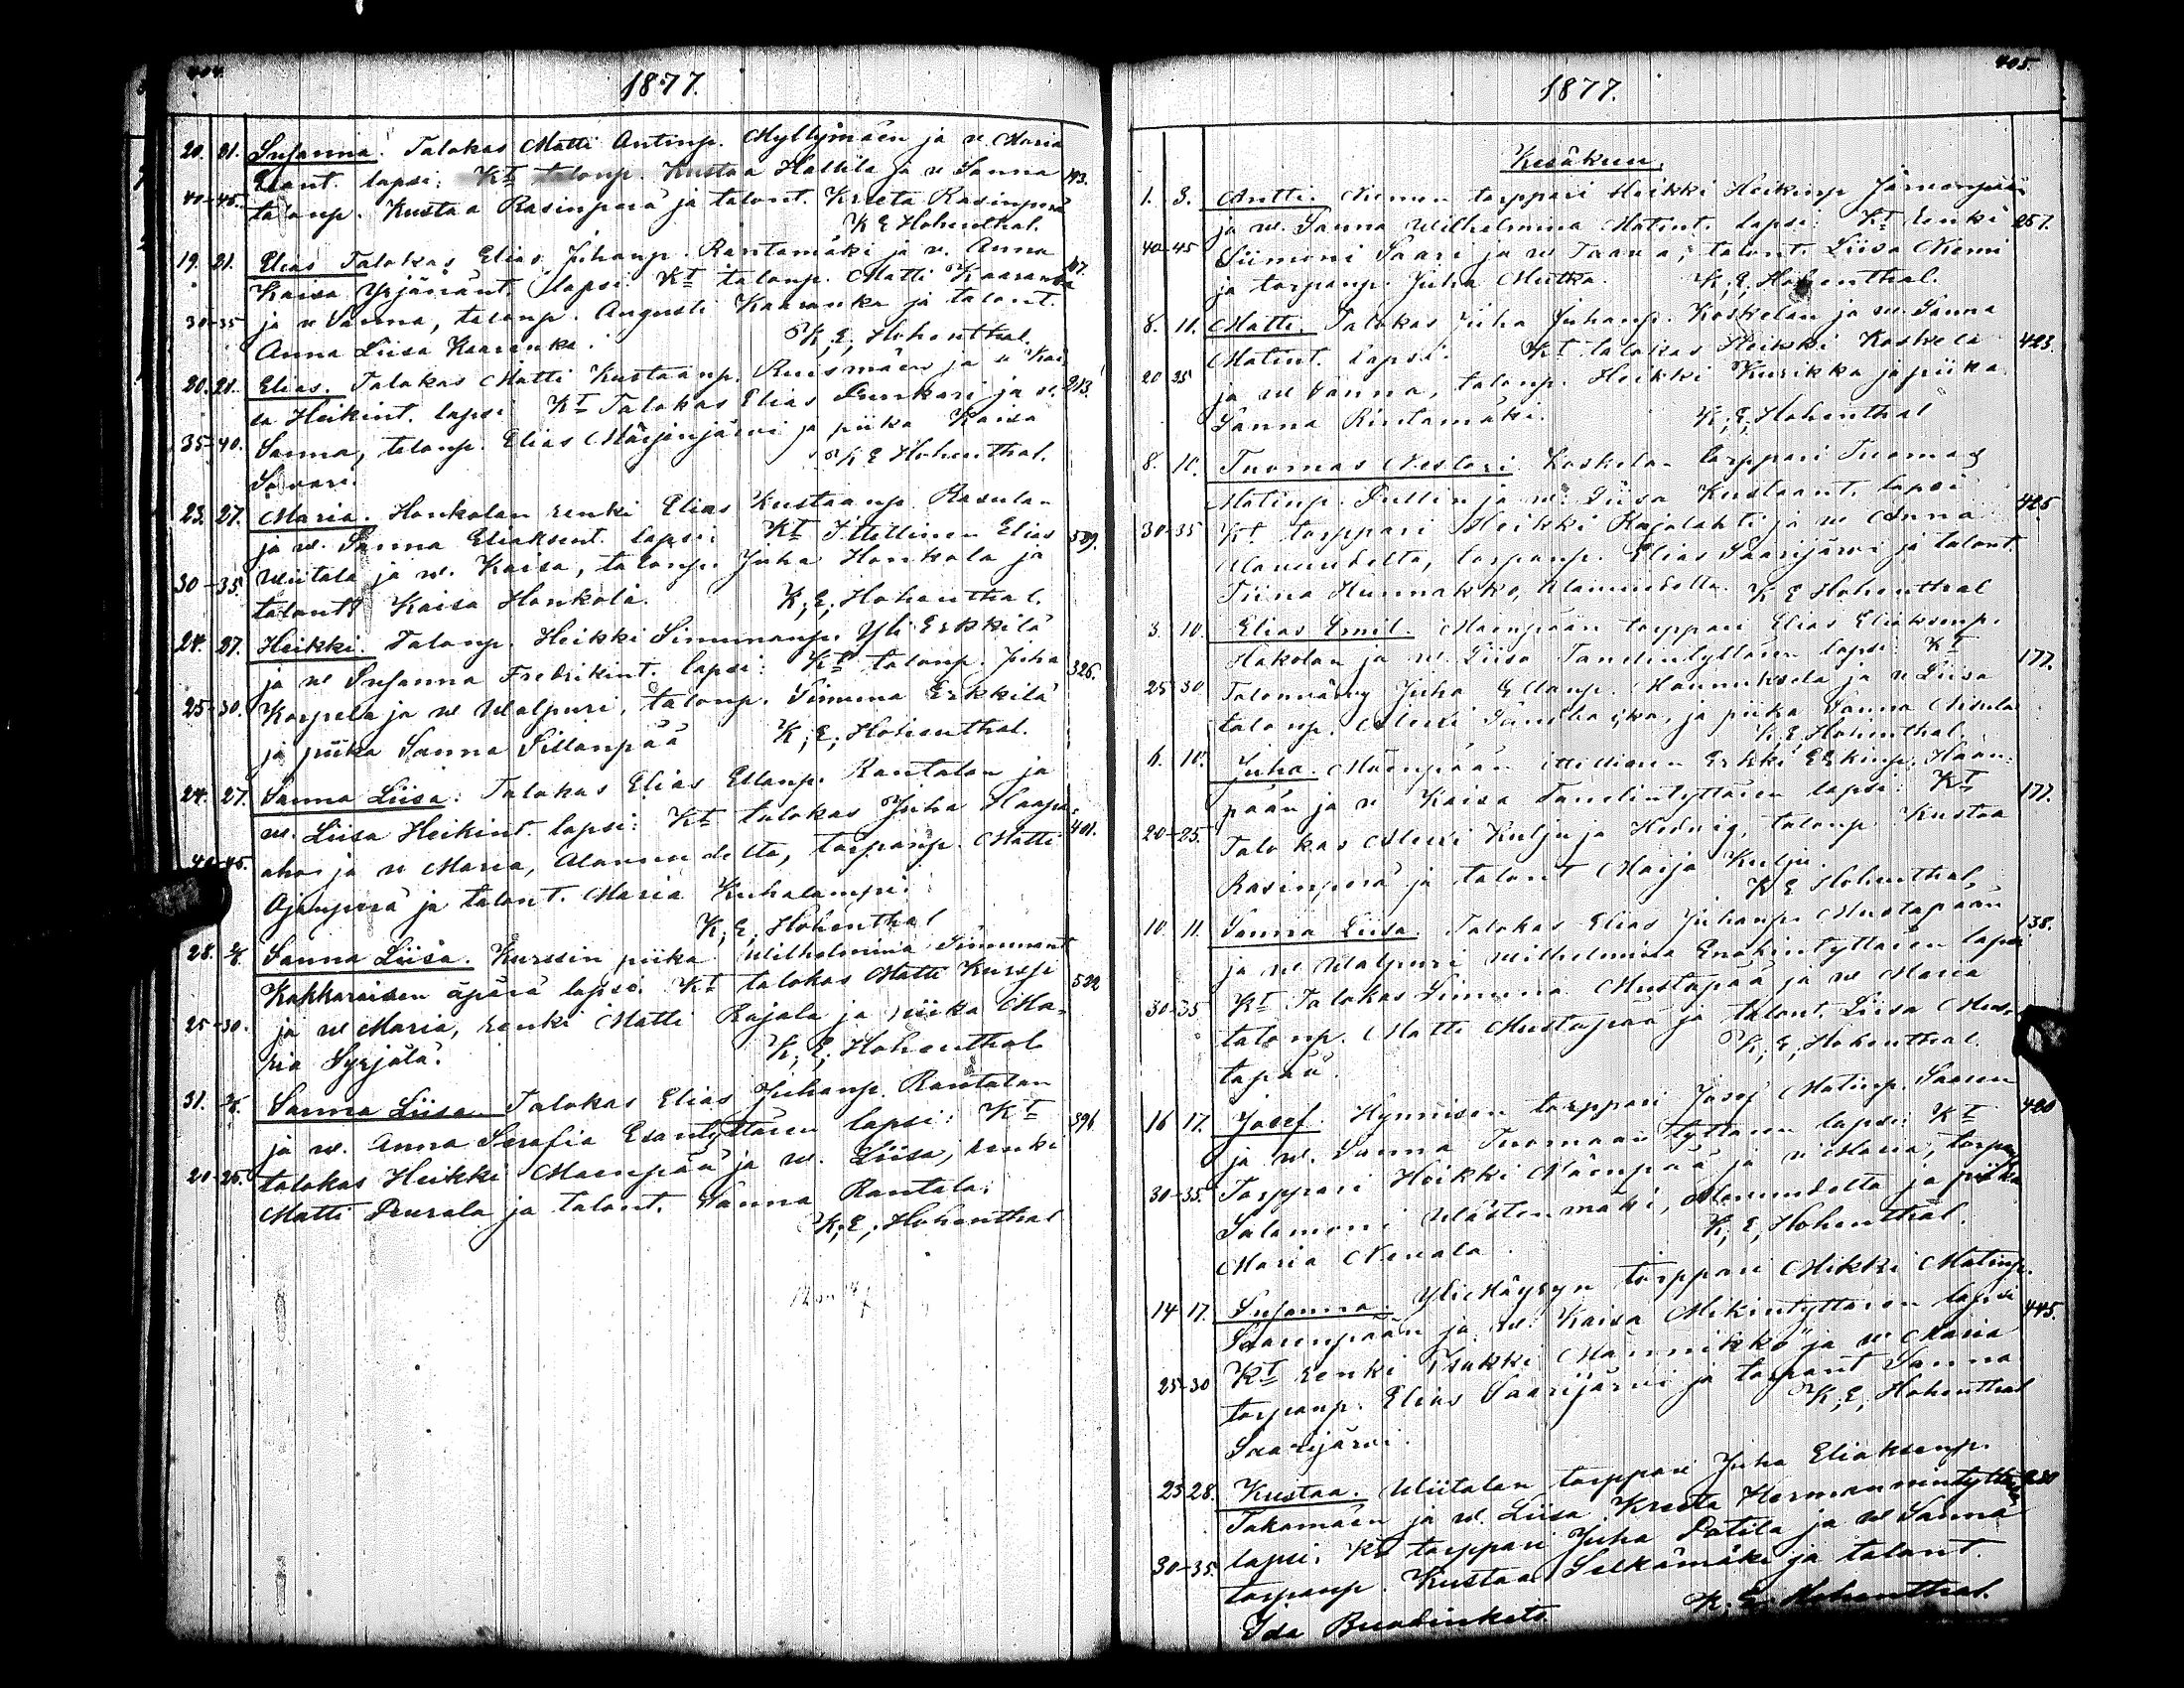 404.
1877.
20. 21. Susanna. Talokas Matti Antinp. Myllymäen ja w. Maria
Esant. lapsi: Kt talonp. Kustaa Hallila ja w Sanna 193.
40-45. talonp. Kustaa Rasinperä ja talont. Kreeta Rasinperä
K E Hohenthal.
19. 21. Elias Talokas Elias Juhanp. Rantamäki ja w. Anna
Kaisa Yrjänänt. lapsi. Kt talonp. Matti Kaaranka 107.
30-35 ja w Sanna, talonp. Augusti Kaaranka ja talont.
Anna Liisa Kaaranka. K; E; Hohenthal.
20. 21. Elias. Talokas Matti Kustaanp. Ruismäen ja w Kai-
sa Heikint. lapsi Kt Talokas Elias Purkari ja w. 213.
35-40. Sanna, talonp. Elias Märjenjärwi ja piika Kaisa
Sawari. K E Hohenthal.
23. 27. Maria. Honkolan renki Elias Kustaanp. Rasulan
ja w. Sanna Eliaksent. lapsi: Kt Itellinen Elias 539.
30-35. Wiitala ja w. Kaisa, talonp. Juha Honkola ja
talont. Kaisa Honkola. K; E; Hohenthal.
24. 27. Heikki. Talonp. Heikki Simunanp. Yli Erkkilä
ja w Susanna Fredrikint. lapsi: Kt talonp. Juha 326.
25-30. Korpela ja w Walpuri, talonp. Simuna Erkkilä
ja piika Sanna Sillanpää K; E; Hohenthal.
24. 27. Sanna Liisa. Talokas Elias Ellanp. Rantalan ja
w. Liisa Heikint. lapsi: Kt talokas Juha Haapa- 401.
40-45. aho ja w Maria, Alamudelta, torparinp. Matti
Ojanperä ja talont. Maria Kuhalampi.
K; E; Hohenthal
28. 3/6. Sanna Liisa. Kurssin piika Wilhelmina Simunant.
Kakkaraisen äpärä lapsi. Kt talokas Matti Kurssi 522
25-30. ja w Maria, renki Matti Rajala ja piika Ma-
ria Syrjälä. K; E; Hohenthal
31. 3/6. Sanna Liisa Talokas Elias Juhanp. Rantalan
ja w. Anna Serafia Esantyttären lapsi: Kt 396
20-25. talokas Heikki Maenpää ja w. Liisa, renki
Matti Peurala ja talont. Sanna Rantala.
K; E; Hohenthal
405.
1877.
Kesäkuu.
1. 3. Antti. Niemen torppari Heikki Heikinp Järwenpään
ja w. Sanna Wilhelmina Matint. lapsi: Kt renki 257.
40-45 Siimoni Saari ja w Jaana, talont. Liisa Niemi
ja torpanp. Juha Mutka. K; E; Hohenthal.
8. 11. Matti. Talokas Juha Juhanp. Koskelan ja w. Sanna
Matint. lapsi. Kt talokas Heikki Koskela 423.
20 25 ja w Sanna, talonp. Heikki Kurikka ja piika
Sanna Rintamäki. K; E; Hohenthal
8. 10. Tuomas Nestori Koskelan torppari Tuomas
Matinp. Pullin ja w. Liisa Kustaant. lapsi 426.
30-35 Kt torppari Heikki Rajalahti ja w Anna
Alamudelta, torpanp. Elias Saarijärwi ja talont.
Tiina Hunnakko, Alamudelta. K E Hohenthal
3. 10. Elias Emil. Maenpään torppari Elias Eliaksenp.
Hakolan ja w. Liisa Tanelintyttären lapsi Kt 177.
25 30 Talonwäwy Juha Ellanp. Hannuksela ja w Liisa
talonp. ja piika Sanna Nisula
K; E; Hohenthal.
6. 10. Juha. Mäenpään itellinen Erkki Erkinp. Haan-
pään ja w Kaisa Tanelintyttären lapsi: Kt 177.
20-25. Talokas Aleksi Kulju ja Hedwig, talonp Kustaa
Rasinperä ja talont Maija Kulju.
K E Hohenthal,
10. 11. Sanna Liisa. Talokas Elias Juhanp. Mustapään 138.
ja w Walpuri Wilhelmiina Enokintyttären lapsi
30-35 Kt Talokas Simuna Mustapää ja w Maria
talonp. Matti Mustapää ja talont. Liisa Mus-
tapää. K; E; Hohenthal.
16 17. Josef. Hynnisen torppari Josef Matinp. Saaren
ja w. Sanna Tuomaan tyttären lapsi: Kt 420
30-35. Torppari Heikki Mäenpää ja w Maria, torpanp
Salomoni Wästenmäki, Alamudelta ja piika
Maria Newala. K, E, Hohenthal.
14 17. Susanna. Yli Häyryn torppari Mikki Matinp.
Saarenpään ja w. Kaisa Mikintyttären lapsi 445.
25-30 Kt renki Isakki Männikkö ja w Maria
torpanp. Elias Saarijärwi ja torpant Sanna
Saarijärwi. K, E, Hohenthal
23 28. Kustaa. Wiitalan torppari Juha Eliaksenp.
Takamäen ja w. Liisa Kreeta Hermannintyttären
30-35. lapsi. Kt torppari Juha Patila ja w Sanna
torpanp. Kustaa Selkämäki ja talont.
Ida K. E. Hohenthal.